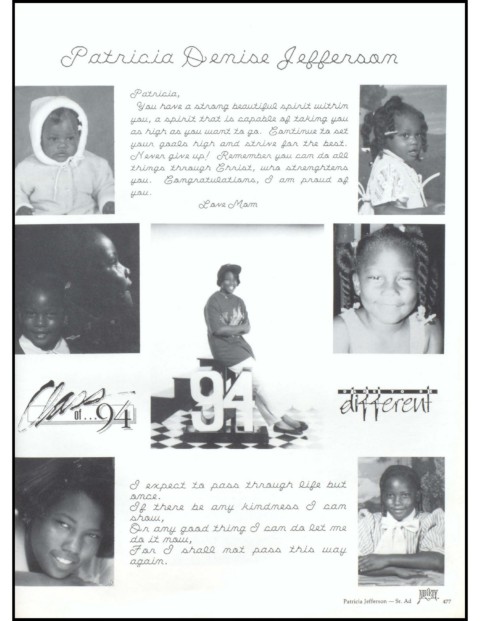 Patricia Denise Jefferson
Patricia,
You have a strong beautiful spirit within
you, a spirit that is capable of taking you
as high as you want to go. Continue to set
your goals high and strive for the best.
Never give up! Remember you can do all
things through Christ, who strengthens
you. Congratulations, I am proud of
you.
Love Mom
94
Class
of...94
different
I expect to pass through life but
once.
If there be any kindness I can
show,
Or any good thing I can do let me
do it now,
For I shall not pass this way
again.
Patricia Jefferson — Sr. Ad
477